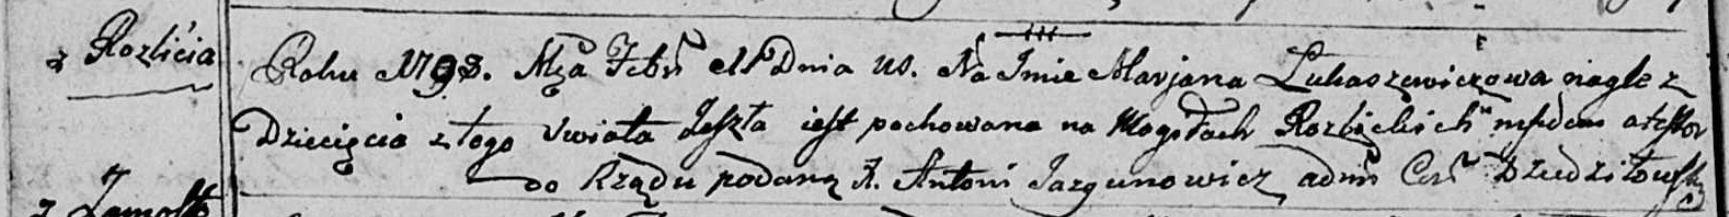 z Rozlicia
Roku 1793. Mca Febr 11 Dnia us. Na Imie Marjana Lukaszewiczowa nagle z
Dziecięcia z tego Swiata Zeszła iest pochowana na Mogiłach Rozlickich
do Rządu podaną X. Antoni Jazgunowicz adm Cer Dziedziłowsky
z Zamost